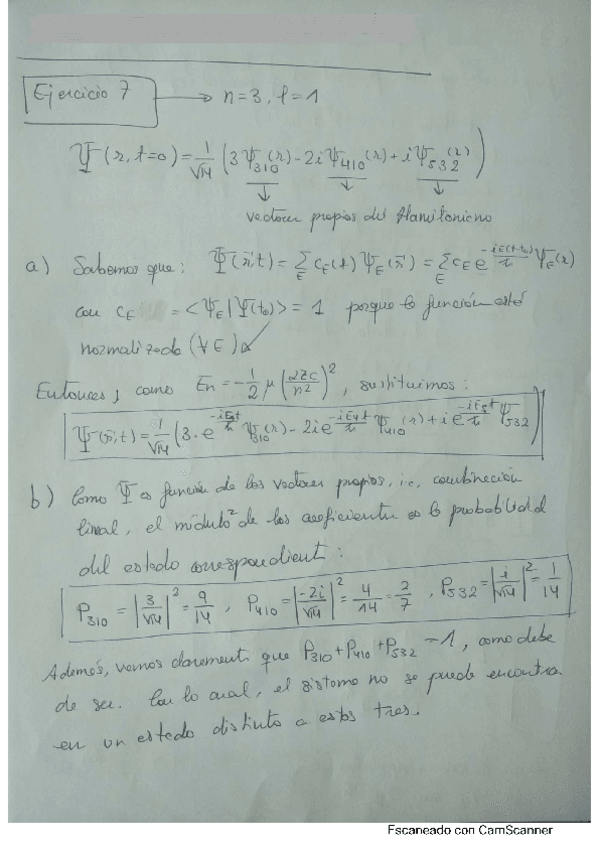 Ejercicio 7 → n=3, l=1
Ψ(r, t=0) = 1/√14 (3Ψ310(r) - 2iΨ410(r) + iΨ532(r))
↓ ↓ ↓
vectores propios del Hamiltoniano
a) Sabemos que: Ψ(r⃗,t) = Σ_E c_E(t) Ψ_E(r⃗) = Σ_E c_E e^{-iE(t-t₀)/ħ} Ψ_E(r)
con c_E = <Ψ_E|Ψ(t₀)> = 1 porque la función está
normalizada (∀E)
Entonces, como En = -1/2 μ (αZc/n²)², sustituimos:
Ψ(r⃗,t) = 1/√14 (3·e^{-iE₃t/ħ} Ψ310(r) - 2i e^{-iE₄t/ħ} Ψ410(r) + i e^{-iE₅t/ħ} Ψ532)
b) Como Ψ es función de los vectores propios, i.e, combinación
lineal, el módulo² de los coeficientes es la probabilidad
del estado correspondient:
P310 = |3/√14|² = 9/14, P410 = |-2i/√14|² = 4/14 = 2/7, P532 = |i/√14|² = 1/14
Además, vemos claramente que P310+P410+P532 = 1, como debe
de ser. Con lo cual, el sistema no se puede encontrar
en un estado distinto a estos tres.
Escaneado con CamScanner